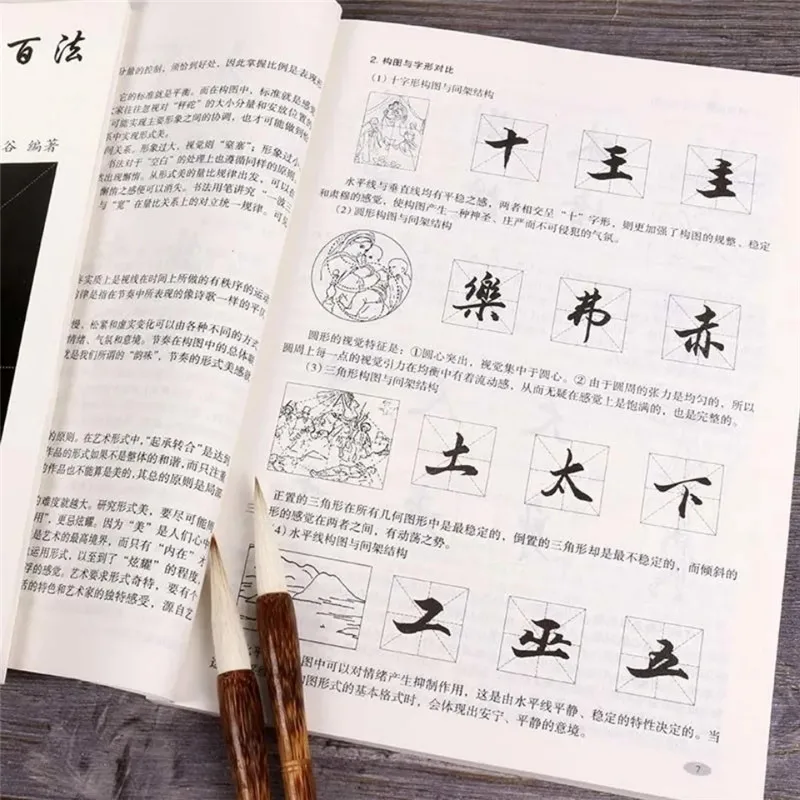 百法
谷 编著
分量的控制，须恰到好处，因此掌握比例是表现形
它的标准就是平衡。而在构图中，标准就是感觉
家往往忽视对“秤砣”的大小分量和安放位置的
可能实现主要形象之间的协调，也才可能做到恰
系中实现形式美。
间关系。形象过大，视觉则“窒塞”；形象过小，
书法对于“空白”的处理上也遵循同样的原则。
然出现懈惰。从形式美的量比规律出发，可以在
懈惰之感便可以消失。书法用笔讲究“一波三
与“宽”在量比关系上的对立统一规律。可见
奏实质上是视线在时间上所做的有秩序的运动
的律是指在节奏中所表现的像诗歌一样的平仄
慢、松紧和虚实变化可以由各种不同的方式
情绪、气氛和意境。节奏在构图中的总体
就是我们所谓的“韵味”，节奏的形式美感
的原则。在艺术形式中，“起承转合”是达到
作品的形式如果不是整体的和谐，而只注重
的作品也不能算是美的，其总的原则是局部
的难度就越大。研究形式美，要尽可能
用”，更忌炫耀。因为“美”是人们心中
是艺术的最高境界，而只有“内在”才
运用形式，以至到了“炫耀”的程度，
浮的感觉。艺术要求形式奇特，要有个
活的特色和艺术家的独特感受，源自艺
2. 构图与字形对比
（1）十字形构图与间架结构
十 王 主
水平线与垂直线均有平稳之感，两者相交呈“十”字形，则更加强了构图的规整、稳定
和肃穆的感觉，使构图产生一种神圣、庄严而不可侵犯的气氛。
（2）圆形构图与间架结构
樂 弗 赤
圆形的视觉特征是：①圆心突出，视觉集中于圆心。②由于圆周的张力是均匀的，所以
圆周上每一点的视觉引力在均衡中有着流动感，从而无疑在感觉上是饱满的，也是完整的。
（3）三角形构图与间架结构
土 太 下
正置的三角形在所有几何图形中是最稳定的，倒置的三角形却是最不稳定的，而倾斜的
形的感觉在两者之间，有动荡之势。
（4）水平线构图与间架结构
工 巫 五
图中可以对情绪产生抑制作用，这是由水平线平静、稳定的特性决定的。当
构图形式的基本格式时，会体现出安宁、平静的意境。
7